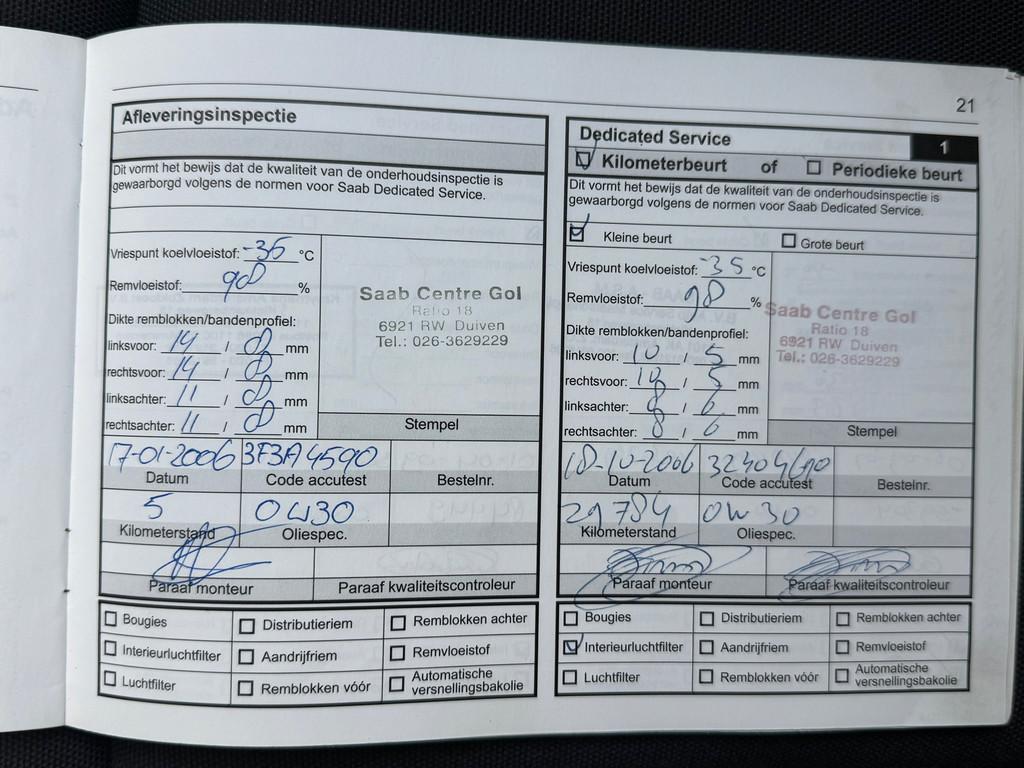 21
Afleveringsinspectie
Dit vormt het bewijs dat de kwaliteit van de onderhoudsinspectie is
gewaarborgd volgens de normen voor Saab Dedicated Service.
Vriespunt koelvloeistof: -36 °C
Remvloeistof: 98 %
Dikte remblokken/bandenprofiel:
linksvoor: 14 / 8 mm
rechtsvoor: 14 / 8 mm
linksachter: 11 / 8 mm
rechtsachter: 11 / 8 mm
Saab Centre Gol
Ratio 18
6921 RW Duiven
Tel.: 026-3629229
Stempel
17-01-2006 3F3A4590
Datum Code accutest Bestelnr.
5 0W30
Kilometerstand Oliespec.
Paraaf monteur Paraaf kwaliteitscontroleur
Bougies Distributieriem Remblokken achter
Interieurluchtfilter Aandrijfriem Remvloeistof
Luchtfilter Remblokken vóór Automatische
versnellingsbakolie
Dedicated Service 1
Kilometerbeurt of Periodieke beurt
Dit vormt het bewijs dat de kwaliteit van de onderhoudsinspectie is
gewaarborgd volgens de normen voor Saab Dedicated Service.
Kleine beurt Grote beurt
Vriespunt koelvloeistof: -35 °C
Remvloeistof: 98 %
Dikte remblokken/bandenprofiel:
linksvoor: 10 / 5 mm
rechtsvoor: 10 / 5 mm
linksachter: 8 / 6 mm
rechtsachter: 8 / 6 mm
Saab Centre Gol
Ratio 18
6921 RW Duiven
Tel.: 026-3629229
Stempel
18-10-2006
Datum Code accutest Bestelnr.
29784 0W30
Kilometerstand Oliespec.
Paraaf monteur Paraaf kwaliteitscontroleur
Bougies Distributieriem Remblokken achter
Interieurluchtfilter Aandrijfriem Remvloeistof
Luchtfilter Remblokken vóór Automatische
versnellingsbakolie